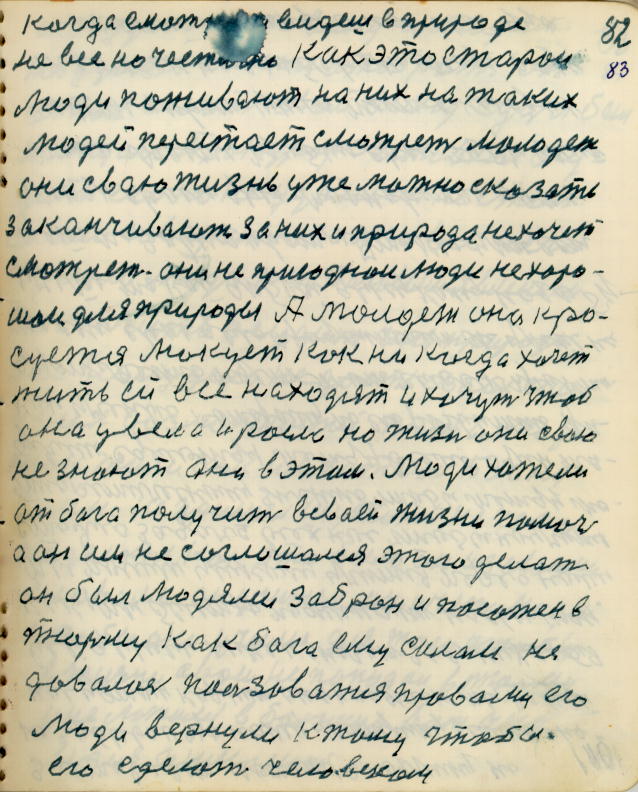 82
83
когда смотриш видеш в природе
не все но честично Как это старои
люди поживают на них на таких
людей перестает смотреть молодеж
они сваю жизнь уже можно сказать
заканчивают. За них и природа не хочет
смотреть. они не пригоднои люди не хоро-
шои для природы А молодеж она кра-
суется ликует как ни когда хочет
жить ей все находят и хочут чтоб
она цвела и росла но жизн они сваю
не знают они в этом. Люди хотели
от бога получить в своей жизни помоч
а он им не соглошался этого делать
он был людями забран и посожен в
тюрму Как бога ему силам не
довалось пользоватся правами его
люди вернули к тому чтобы.
его сделать человеком